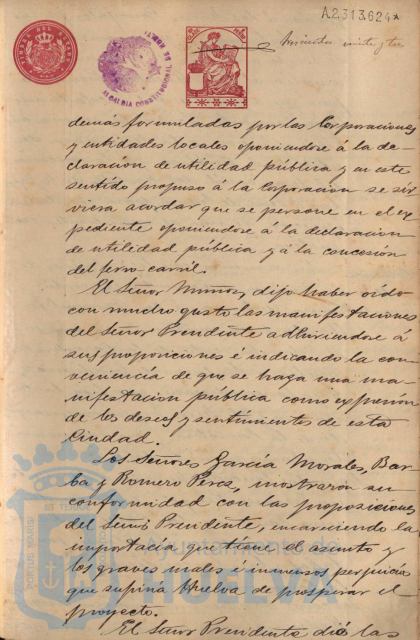 A.2313.624*
demás formuladas por las Corporaciones
y entidades locales oponiendose á la de-
claración de utilidad pública y en este
sentido propuso á la Corporación se sir
viera acordar que se persone en el ex
pediente oponiendose á la declaración
de utilidad pública y á la concesión
del ferro-carril.
El Señor Muñoz, dijo haber oído
con mucho gusto las manifestaciones
del Señor Presidente adhiriendose á
sus proposiciones é indicando la con-
veniencia de que se haga una ma-
nifestación pública como expresión
de los deseos y sentimientos de esta
Ciudad.
Los Señores García Morales, Bar-
ba y Romero Perez, mostraron su
conformidad con las proposiciones
del Señor Presidente, encareciendo la
importacia que tiene el asunto y
los graves males é inmensos perjuicios
que sufriria Huelva de prosperar el
proyecto.
El Señor Presidente dió las
ALCALDIA CONSTITUCIONAL DE
Ayuntamiento de
HUELVA